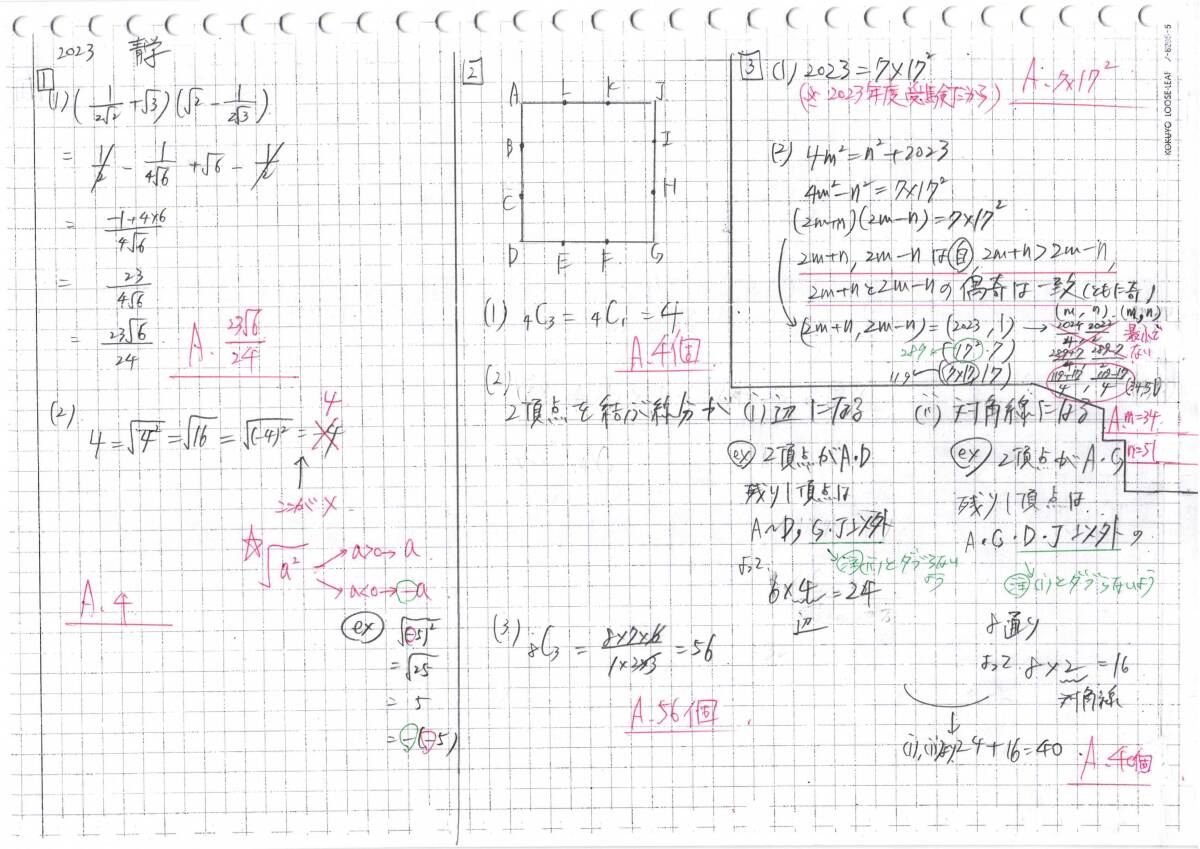 2023 青学
1
(1) (1/2√2 + √3)(√2 - 1/2√3)
= 1/2 - 1/4√6 + √6 - 1/2
= -1+4×6/4√6
= 23/4√6
= 23√6/24
A. 23√6/24
(2)
4 = √4² = √16 = √(-4)² = -4
4
ここが×
☆ √a²
→ a>0 → a
→ a<0 → -a
A. 4
ex √(-5)²
= √25
= 5
= -(-5)
2
A L K J
B I
C H
D E F G
(1) ₄C₃ = ₄C₁ = 4
A. 4個
(2)
2頂点を結ぶ線分が (i) 辺になる (ii) 対角線になる
ex 2頂点がA・D
残り1頂点は
A~D, G・J以外
注 (ii)とダブらないよう
よって
6×4 = 24
辺
ex 2頂点がA・G
残り1頂点は
A・G・D・J以外の
注 (i)とダブらないよう
8通り
よって 8×2 = 16
対角線
(i),(ii)より 24+16=40
A. 40個
(3) ₈C₃ = 8×7×6/1×2×3 = 56
A. 56個
3
(1) 2023 = 7×17²
(※ 2023年度受験だから)
A. 7×17²
(2) 4m² = n² + 2023
4m² - n² = 7×17²
(2m+n)(2m-n) = 7×17²
2m+n, 2m-nは自, 2m+n > 2m-n,
2m+nと2m-nの偶奇は一致(ともに奇)
(m, n)・(m, n)
(2m+n, 2m-n) = (2023, 1) → 2024/4, 2022/2
最小でない
289 ← (17², 7) 289+7/4 289-7
119 ← (7×17, 17) 119+17/4, 119-17/4 (34, 51)
A. m=34
n=51
KOKUYO LOOSE-LEAF